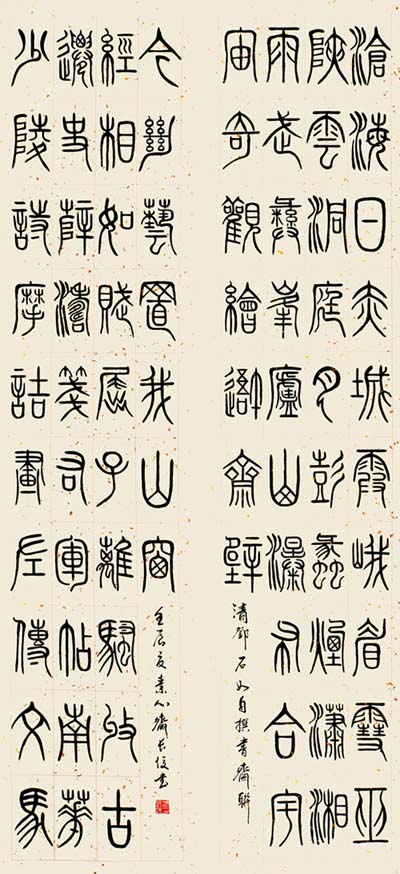 滄海日赤城霞峨眉雪巫
峽雲洞庭月彭蠡煙瀟湘
雨武彝峯廬山瀑布合宇
宙奇觀繪吾齋壁
清鄧石如自撰書齋聯
少陵詩摩詰畫左傳文馬
遷史薛濤箋右軍帖南華
經相如賦屈子離騷收古
今絕藝置我山窗
壬辰夏素心齋書